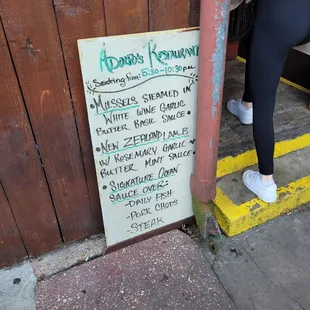 Adobo's Restaurant
Seating from: 5:30-10:30pm
• Mussels steamed in
White wine Garlic
Butter Basil Sauce
• New Zealand Lamb
w/ Rosemary Garlic
Butter Mint Sauce
• Signature Ocean
Sauce over:
- Daily Fish
- Pork Chops
- Steak